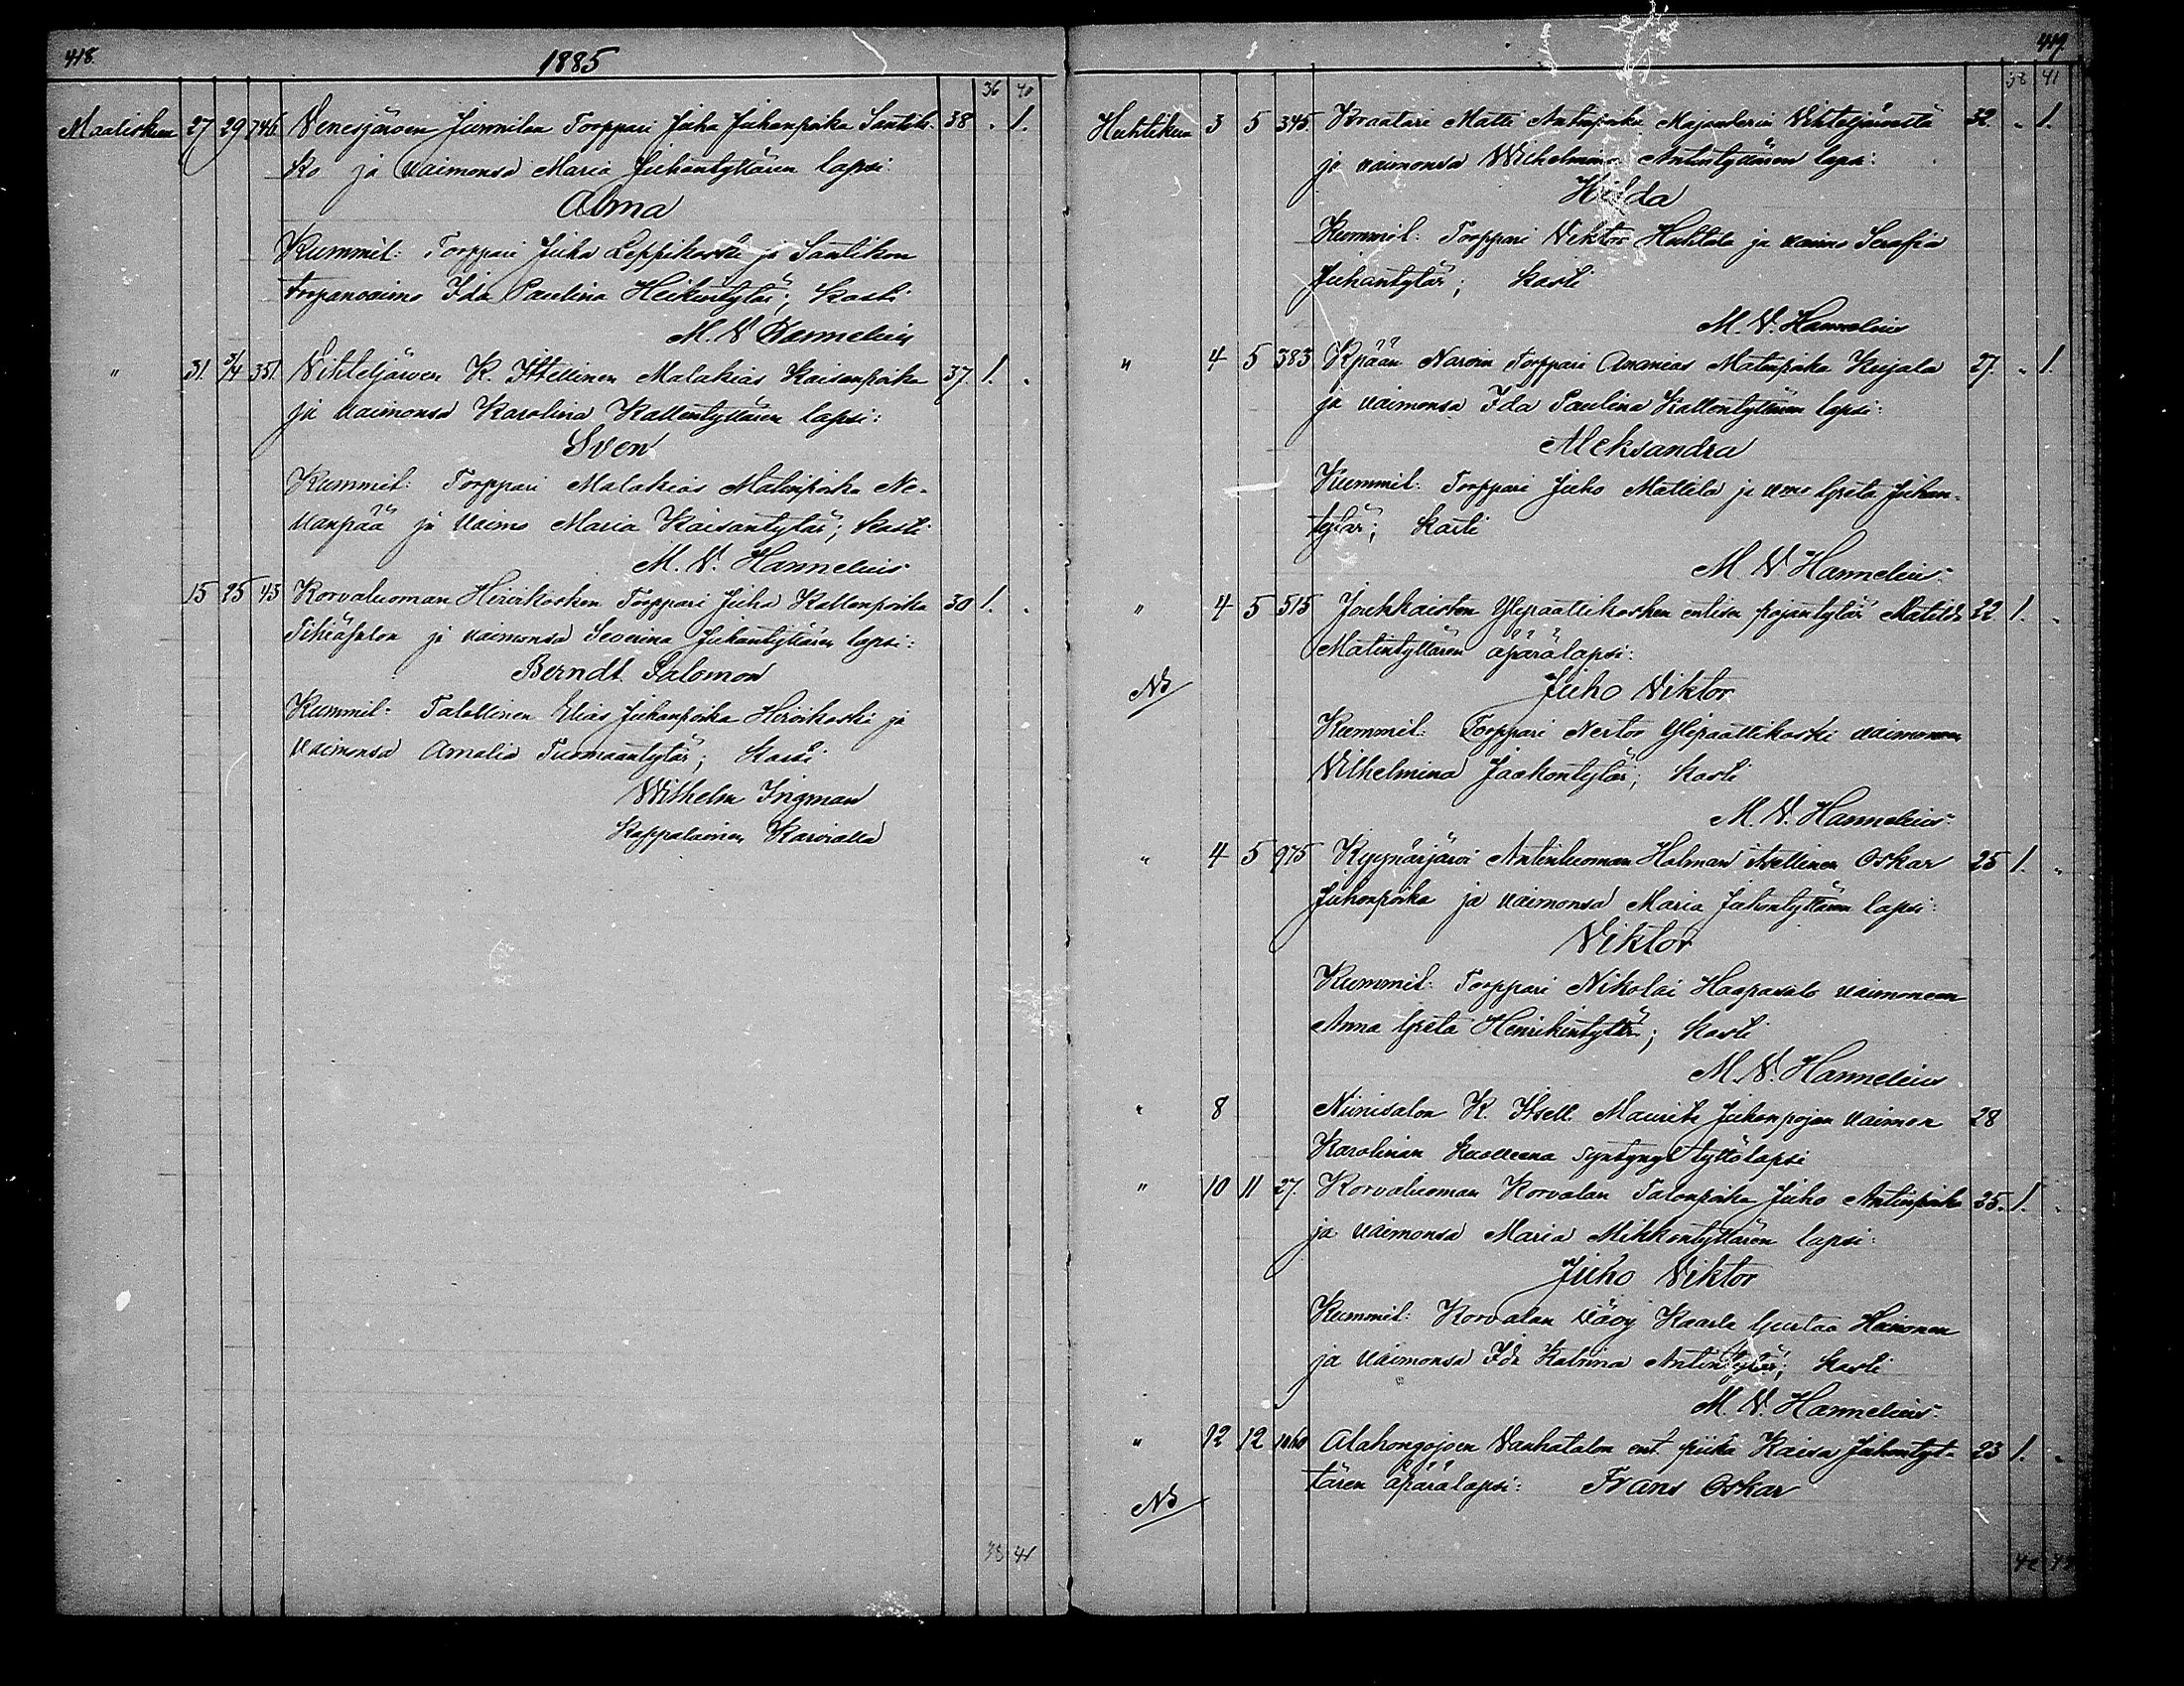 418.
1885
36 40
Maaliskuu 27 29 746. Venesjärven Junnilan Torppari Juha Juhanpoika Santik- 38 " 1.
ko ja vaimonsa Maria Juhantyttären lapsi:
Alma
Kummit: Torppari Juha Leppikoski ja Santikon
torpanvaimo Ida Paulina Heikintytär; kasti
M. V. Hannelius
" 31. 3/4 351. Vihteljärven K. Itsellinen Malakias Kaisanpoika 37. 1. "
ja vaimonsa Karolina Kallentyttären lapsi:
Sven
Kummit: Torppari Malakias Matinpoika Ne-
vanpää ja vaimo Maria Kaisantytär; kasti
M. V. Hannelius
15 25 43 Korvaluoman Hirvikosken Torppari Juha Kallenpoika 30 1. "
ja vaimonsa Severina Juhantyttären lapsi:
Berndt Salomon
Kummit: Talollinen Elias Juhanpoika Hirvikoski ja
vaimonsa Amalia Tuomaantytär; kasti
Wilhelm Ingman
Kappalainen Karvialla
38 41
419.
38 41
Huhtikuu 3 5 345. Kraatari Matti Antinpoika Majanderin Vihteljärveltä 32. " 1.
ja vaimonsa Wilhelmina Antintyttären lapsi:
Hilda
Kummit: Torppari Viktor Huhtala ja vaimo Serafia
Juhantytär; kasti
M. V. Hannelius
" 4 5 383 Kpään Narvin Torppari Ananias Matinpoika Kujala 27. " 1.
ja vaimonsa Ida Paulina Kallentyttären lapsi:
Aleksandra
Kummit: Torppari Juho Mattila ja vmo Greta Juhan-
tytär; kasti
M. V. Hannelius
" 4 5 515 Jaukkaisten Ylipaattikosken entisen pojantytär Matilda 22 1. "
Matintyttären äpärälapsi:
NB Juho Viktor
Kummit: Torppari Nestor Ylipaattikoski vaimoneen
Vilhelmina Jaakontytär; kasti
M. V. Hannelius
" 4 5 975 Kyynärjärvi Antinluoman Holman itsellinen Oskar 25 1. "
Juhonpoika ja vaimonsa Maria Juhontyttären lapsi:
Viktor
Kummit: Torppari Nikolai Haapasalo vaimoneen
Anna Greta Henrikintytär; kasti
M. V. Hannelius
" 8 Niinisalon K. Itsell. Maurits Juhanpojan vaimon 28
Karolinan kuolleena syntynyt tyttölapsi
" 10 11 27. Korvaluoman Korvalan Talonpoika Juho Antinpoika 35. 1. "
ja vaimonsa Maria Mikkontyttären lapsi:
Juho Viktor
Kummit: Korvalan vävy Kaarle Gustaa Hainonen
ja vaimonsa Ida Katriina Antintytär; kasti
M. V. Hannelius
" 12 12 1060 Alahongojoen Vanhatalon ent. piika Kaisa Juhontyt- 23 1. "
tären äpärälapsi: Frans Oskar
NB